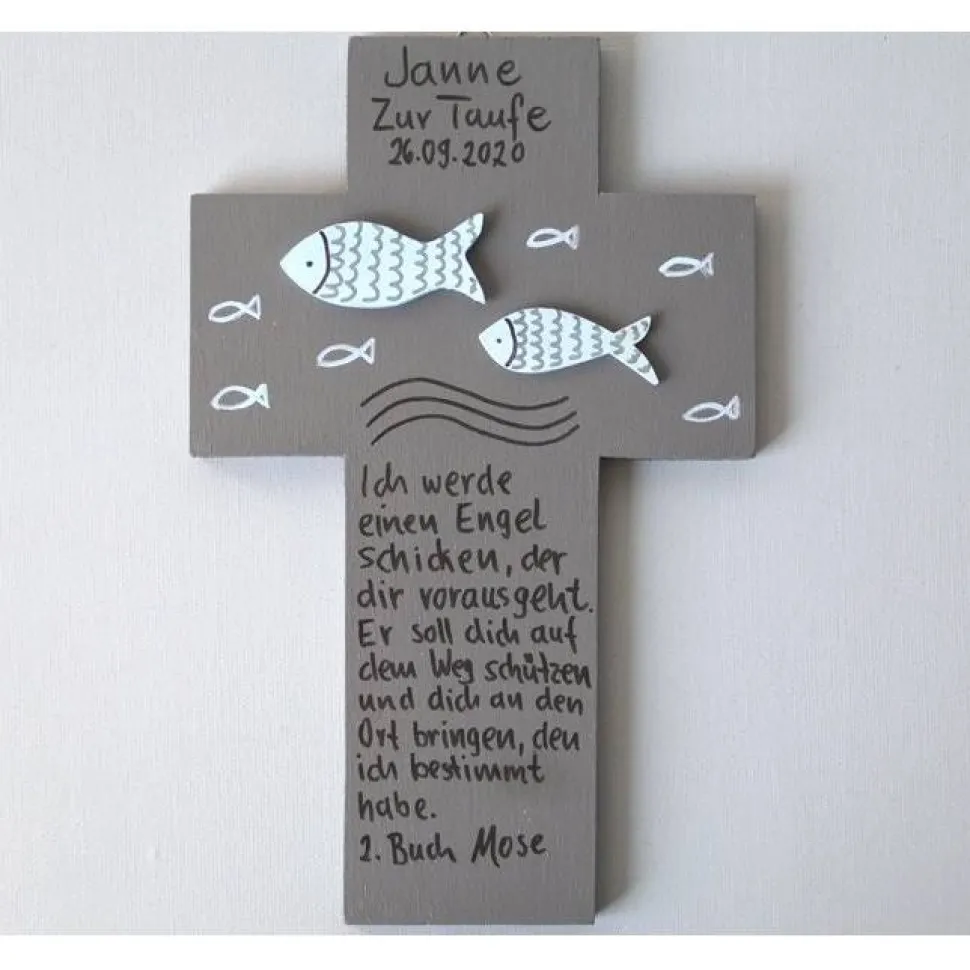 Janne
Zur Taufe
26.09.2020
Ich werde
einen Engel
schicken, der
dir vorausgeht.
Er soll dich auf
dem Weg schützen
und dich an den
Ort bringen, den
ich bestimmt
habe.
2. Buch Mose